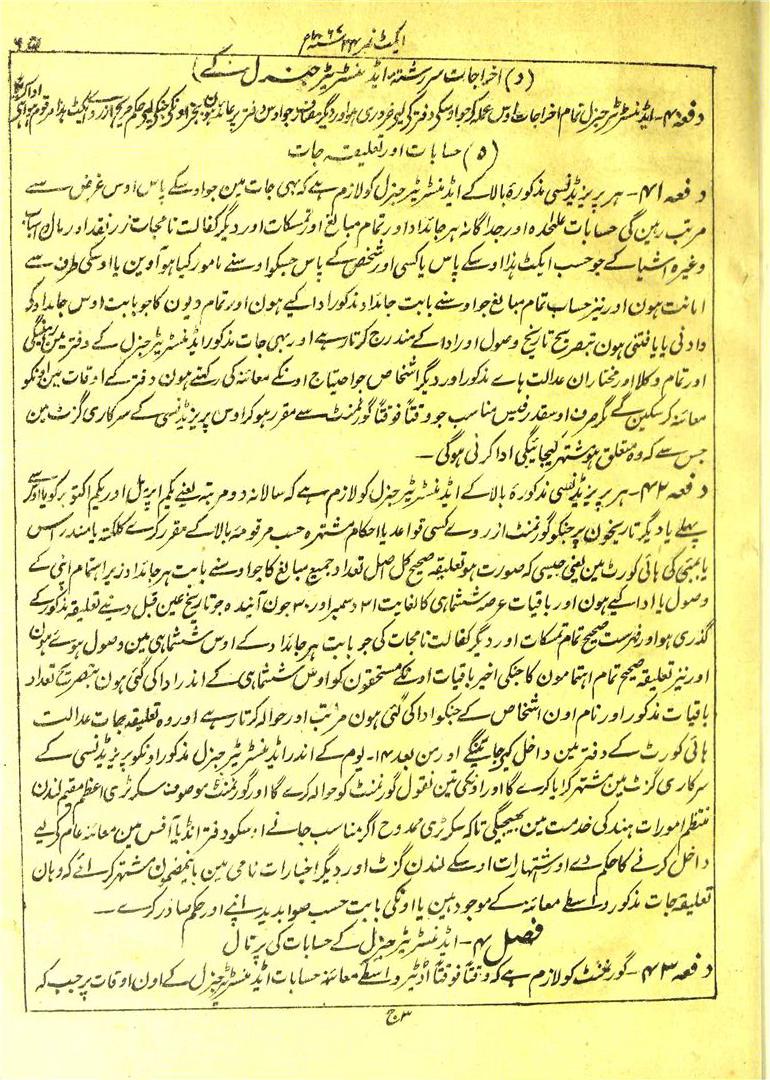 ایکٹ نمبر ۲۴ سنہ ۱۸۶۷ع
(د) اخراجات سررشتہ ایڈمنسٹریٹر جنرل کے
دفعہ ۴۰- ایڈمنسٹریٹر جنرل تمام اخراجات اوس عملہ کے جو اوسکی دفتر کی لیی ضروری ہو اور دیگر مصارف جو اوس دفتر پر عائد ہون بجز اونکی جنکی لیی حکم صریح ازروے ایکٹ ہذا مرقوم ہوا ہی ادا کریگا
(۵) حسابات اور تعلیقہ جات
دفعہ ۴۱- ہر پریزیڈنسی مذکورہ بالا کے ایڈمنسٹریٹر جنرل کو لازم ہے کہ بہی جات مین جو اوسکے پاس اوس غرض سے
مرتب رہین گی حسابات علیحدہ اور جداگانہ ہر جائداد اور تمام مبالغ اور تمسکات اور دیگر کفالت نامجات زرنقد اور مال و اسباب
وغیرہ اشیا کے جو حسب ایکٹ ہذا اوسکے پاس یا کسی اور شخص کے پاس جسکو اوسنے مامور کیا ہو آوین یا اوسکی طرف سے
امانت ہون اور نیز حساب تمام مبالغ جو اوسنے بابت جائداد مذکور ادا کیے ہون اور تمام دیون کا جو بابت اوس جائداد کے
دادنی یا یافتنی ہون بتصریح تاریخ وصول اور ادا کے مندرج کرتا رہے اور بہی جات مذکور ایڈمنسٹریٹر جنرل کے دفتر مین رہینگی
اور تمام وکلا اور مختاران عدالت ہاے مذکور اور دیگر اشخاص جو احتیاج اونکے معائنہ کی رکھتے ہون دفتر کے اوقات مین اونکو
معائنہ کر سکین گے مگر صرف اوسقدر فیس مناسب جو وقتاً فوقتاً گورنمنٹ سے مقرر ہوکر اوس پریزیڈنسی کے سرکاری گزٹ مین
جس سے کہ وہ متعلق ہو مشتہر کیجائیگی ادا کرنی ہوگی-
دفعہ ۴۲- ہر پریزیڈنسی مذکورہ بالا کے ایڈمنسٹریٹر جنرل کو لازم ہے کہ سالانہ دو مرتبہ یعنے یکم اپریل اور یکم اکتوبر کو یا اوس سے
پہلے یا دیگر تاریخون پر جنکو گورنمنٹ ازروے کسی قواعد یا احکام مشتہرہ حسب مرقومہ بالا کے مقرر کرے کلکتہ یا مندراس
یا بمبئی کی ہائی کورٹ مین یعنی جیسی کہ صورت ہو تعلیقہ صحیح کل اصل تعداد جمیع مبالغ کا جو اوسنے بابت ہر جائداد زیر اہتمام اپنی کے
وصول یا ادا کیے ہون اور باقیات عرصہ ششماہی کا لغایت ۳۱ دسمبر اور ۳۰ جون آیندہ جو تاریخ عین قبل دینے تعلیقہ مذکور کے
گذری ہو اور فہرست صحیح تمام تمسکات اور دیگر کفالت نامجات کی جو بابت ہر جائداد کے اوس ششماہی مین وصول ہوئے ہون
اور نیز تعلیقہ صحیح تمام اہتمامون کا جنکی اخیر باقیات اونکے مستحقون کو اوس ششماہی کے اندر ادا کی گئی ہون بتصریح تعداد
باقیات مذکور اور نام اون اشخاص کے جنکو ادا کی گئی ہون مرتب اور حوالہ کرتا رہے اور وہ تعلیقہ جات عدالت
ہائی کورٹ کے دفتر مین داخل کیے جاینگے اور من بعد ۱۴- یوم کے اندر ایڈمنسٹریٹر جنرل مذکور اونکو پریزیڈنسی کے
سرکاری گزٹ مین مشتہر کرایا کرے گا اور اونکی تین نقول گورنمنٹ کو حوالہ کرے گا اور گورنمنٹ موصوف سکرٹری اعظم مقیم لندن
منتظم امورات ہند کی خدمت مین بھیجیگی تاکہ سکرٹری ممدوح اگر مناسب جانے اوسکو دفتر انڈیا آفس مین معائنہ عام کے لیے
داخل کرنے کا حکم دے اور اشتہارات اوسکے لندن گزٹ اور دیگر اخبارات نامی مین باینمضمون مشتہر کرائے کہ وہان
تعلیقہ جات مذکور واسطے معائنہ کے موجود ہین یا اونکی بابت حسب صوابدید اپنے اور حکم صادر کرے-
فصل ۴- ایڈمنسٹریٹر جنرل کے حسابات کی پرتال
دفعہ ۴۳- گورنمنٹ کو لازم ہے کہ وقتاً فوقتاً آڈیٹر واسطے معائنہ حسابات ایڈمنسٹریٹر جنرل کے اون اوقات پر جب کہ
ج۳